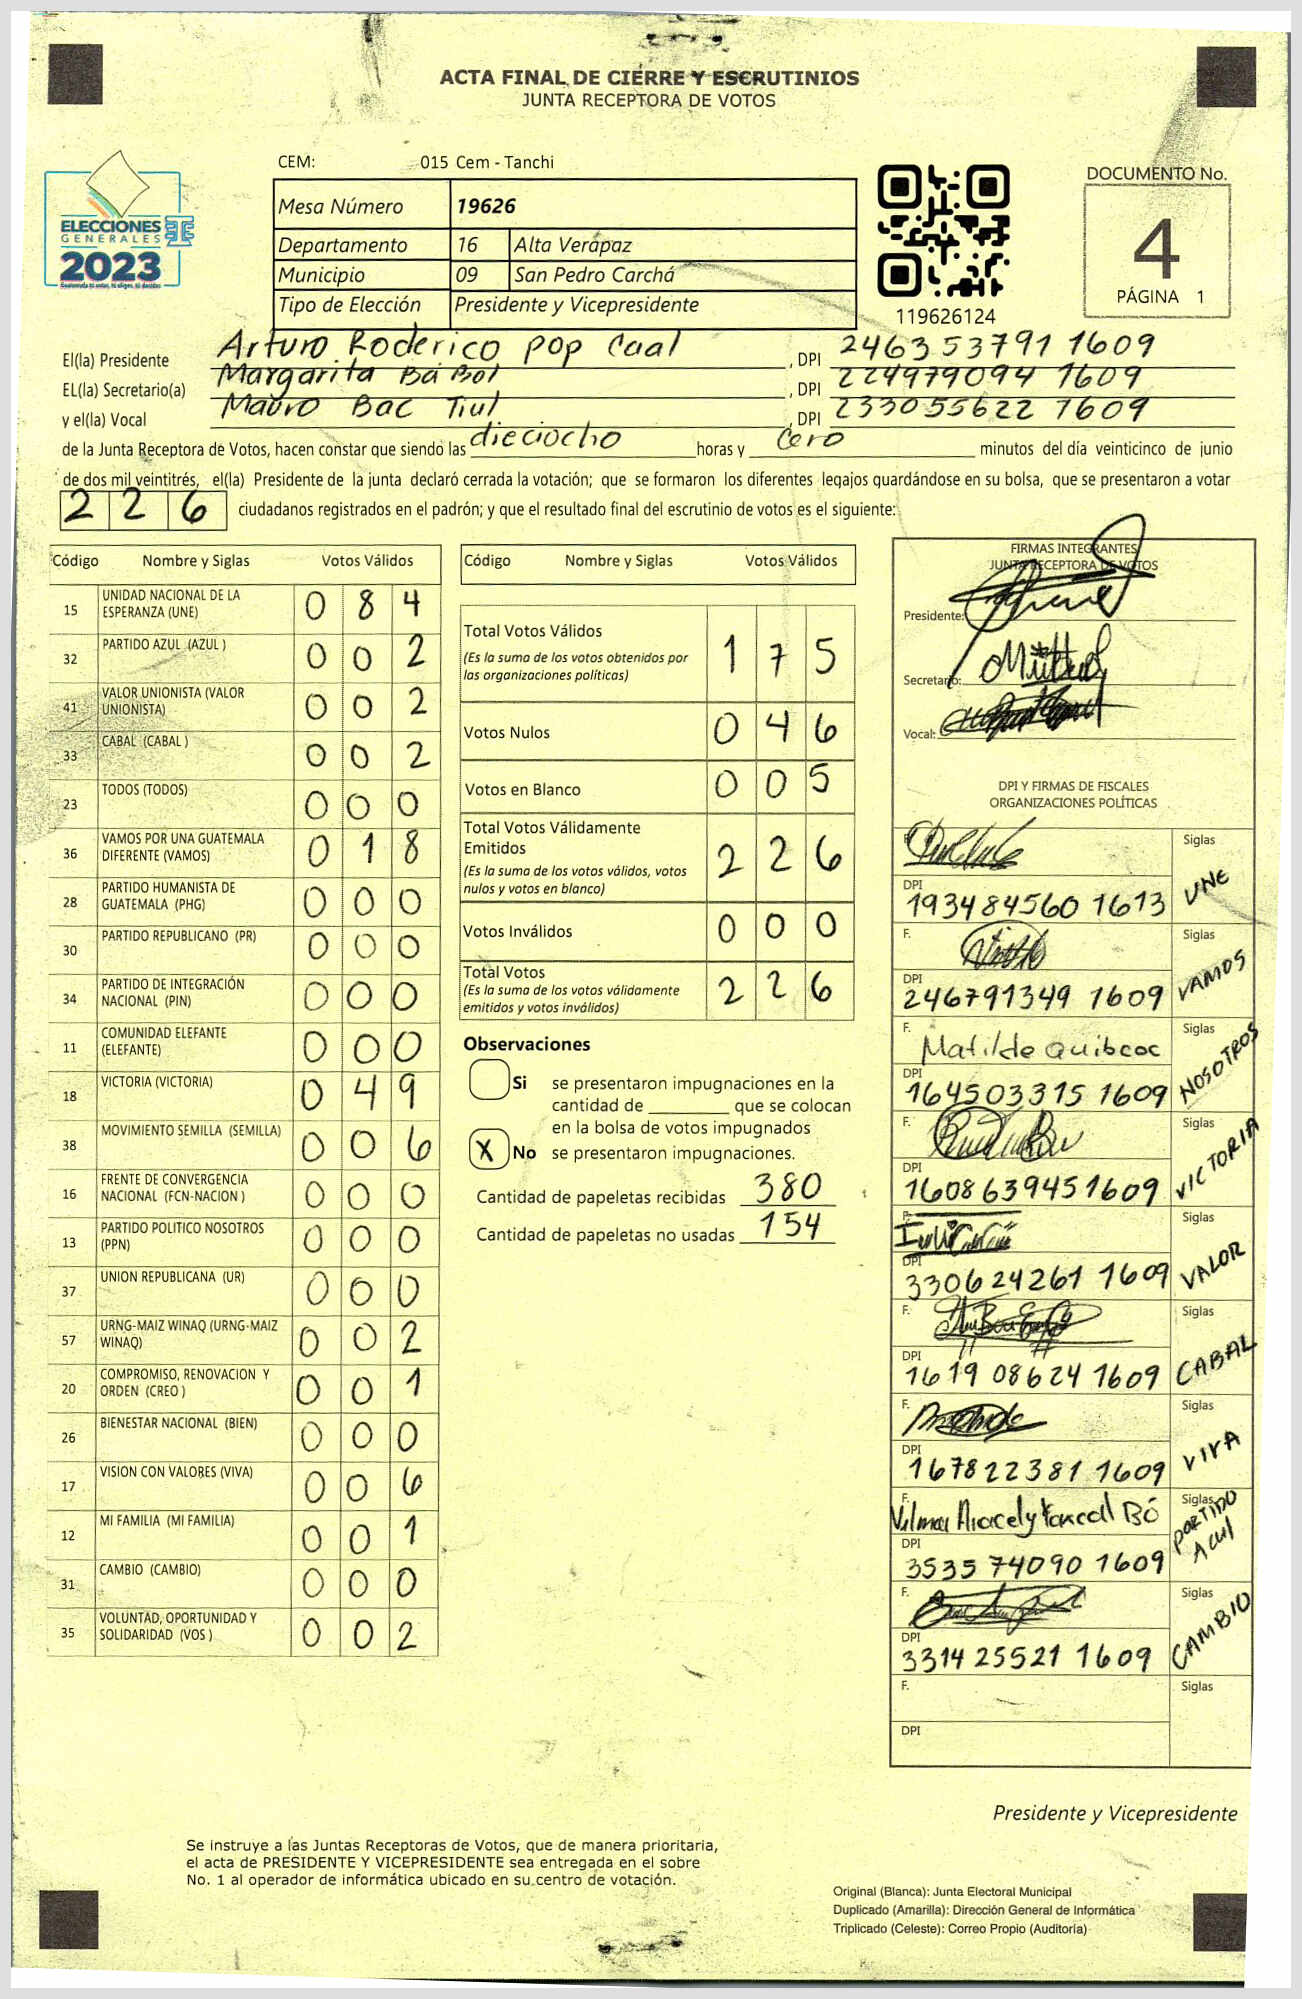 ACTA FINAL DE CIERRE Y ESCRUTINIOS
JUNTA RECEPTORA DE VOTOS
CEM: 015 Cem - Tanchi
Mesa Número 19626
Departamento 16 Alta Verapaz
Municipio 09 San Pedro Carchá
Tipo de Elección Presidente y Vicepresidente
ELECCIONES
GENERALES
2023
119626124
DOCUMENTO No.
4
PÁGINA 1
El(la) Presidente Arturo Roderico pop Caal, DPI 246353791 1609
EL(la) Secretario(a) Margarita Bá Bol, DPI 224979094 1609
y el(la) Vocal Mauro Bac Tiul, DPI 233055622 1609
de la Junta Receptora de Votos, hacen constar que siendo las dieciocho horas y cero minutos del día veinticinco de junio
de dos mil veintitrés, el(la) Presidente de la junta declaró cerrada la votación; que se formaron los diferentes legajos guardándose en su bolsa, que se presentaron a votar
226 ciudadanos registrados en el padrón; y que el resultado final del escrutinio de votos es el siguiente:
Código Nombre y Siglas Votos Válidos
15 UNIDAD NACIONAL DE LA ESPERANZA (UNE) 0 8 4
32 PARTIDO AZUL (AZUL ) 0 0 2
41 VALOR UNIONISTA (VALOR UNIONISTA) 0 0 2
33 CABAL (CABAL ) 0 0 2
23 TODOS (TODOS) 0 0 0
36 VAMOS POR UNA GUATEMALA DIFERENTE (VAMOS) 0 1 8
28 PARTIDO HUMANISTA DE GUATEMALA (PHG) 0 0 0
30 PARTIDO REPUBLICANO (PR) 0 0 0
34 PARTIDO DE INTEGRACIÓN NACIONAL (PIN) 0 0 0
11 COMUNIDAD ELEFANTE (ELEFANTE) 0 0 0
18 VICTORIA (VICTORIA) 0 4 9
38 MOVIMIENTO SEMILLA (SEMILLA) 0 0 6
16 FRENTE DE CONVERGENCIA NACIONAL (FCN-NACION ) 0 0 0
13 PARTIDO POLITICO NOSOTROS (PPN) 0 0 0
37 UNION REPUBLICANA (UR) 0 0 0
57 URNG-MAIZ WINAQ (URNG-MAIZ WINAQ) 0 0 2
20 COMPROMISO, RENOVACION Y ORDEN (CREO ) 0 0 1
26 BIENESTAR NACIONAL (BIEN) 0 0 0
17 VISION CON VALORES (VIVA) 0 0 6
12 MI FAMILIA (MI FAMILIA) 0 0 1
31 CAMBIO (CAMBIO) 0 0 0
35 VOLUNTAD, OPORTUNIDAD Y SOLIDARIDAD (VOS ) 0 0 2
Código Nombre y Siglas Votos Válidos
Total Votos Válidos 1 7 5
(Es la suma de los votos obtenidos por
las organizaciones políticas)
Votos Nulos 0 4 6
Votos en Blanco 0 0 5
Total Votos Válidamente
Emitidos 2 2 6
(Es la suma de los votos válidos, votos
nulos y votos en blanco)
Votos Inválidos 0 0 0
Total Votos 2 2 6
(Es la suma de los votos válidamente
emitidos y votos inválidos)
Observaciones
Si se presentaron impugnaciones en la
cantidad de ________ que se colocan
en la bolsa de votos impugnados
X No se presentaron impugnaciones.
Cantidad de papeletas recibidas 380
Cantidad de papeletas no usadas 154
FIRMAS INTEGRANTES
JUNTA RECEPTORA DE VOTOS
Presidente:
Secretario:
Vocal:
DPI Y FIRMAS DE FISCALES
ORGANIZACIONES POLÍTICAS
Siglas UNE
DPI 193484560 1613
F. Siglas VAMOS
DPI 246791349 1609
F. Matilde Quibcoc Siglas NOSOTROS
DPI 164503315 1609
F. Siglas VICTORIA
DPI 160863945 1609
F. Siglas VALOR
DPI 330624261 1609
F. Siglas CABAL
DPI 1619 08624 1609
F. Siglas VIVA
DPI 167822381 1609
F. Vilma Aracely Bó Siglas PORTIDO ACUl
DPI 3535 74090 1609
F. Siglas CAMBIO
DPI 3314 25521 1609
F. Siglas
DPI
Presidente y Vicepresidente
Se instruye a las Juntas Receptoras de Votos, que de manera prioritaria,
el acta de PRESIDENTE Y VICEPRESIDENTE sea entregada en el sobre
No. 1 al operador de informática ubicado en su centro de votación.
Original (Blanca): Junta Electoral Municipal
Duplicado (Amarilla): Dirección General de Informática
Triplicado (Celeste): Correo Propio (Auditoría)